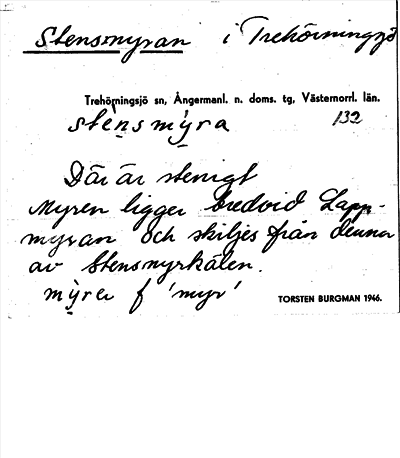 Stensmyran i Trehörningsjö
Trehörningsjö sn, Ångermanl. n. doms. tg, Västernorrl. län.
stensmyra 132
Där är stenigt
Myren ligger bredvid Lapp-
myran och skiljes från denna
av Stensmyrkälen.
myra f 'myr'
TORSTEN BURGMAN 1946.